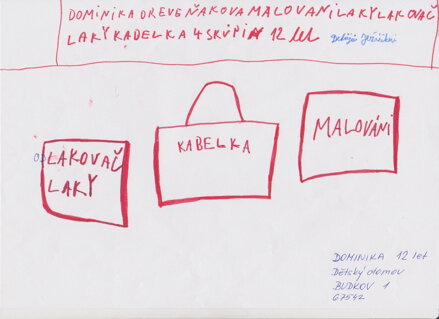 DOMINIKA DREVEŇAKOVA MALOVANI LAKY LAKOVAČ
LAKY KADELKA 4 SKUPINA 12 let
ODLAKOVAČ
LAKY
KABELKA
MALOVÁNI
DOMINIKA 12 let
Dětský domov
BUDKOV 1
67542